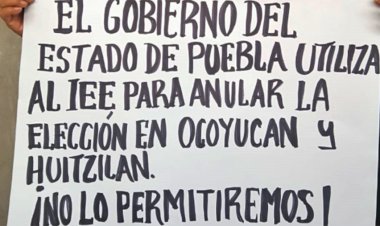 EL GOBIERNO DEL
ESTADO DE PUEBLA UTILIZA
AL IEE PARA ANULAR LA
ELECCIÓN EN OCOYUCAN Y
HUITZILAN.
¡NO LO PERMITIREMOS!